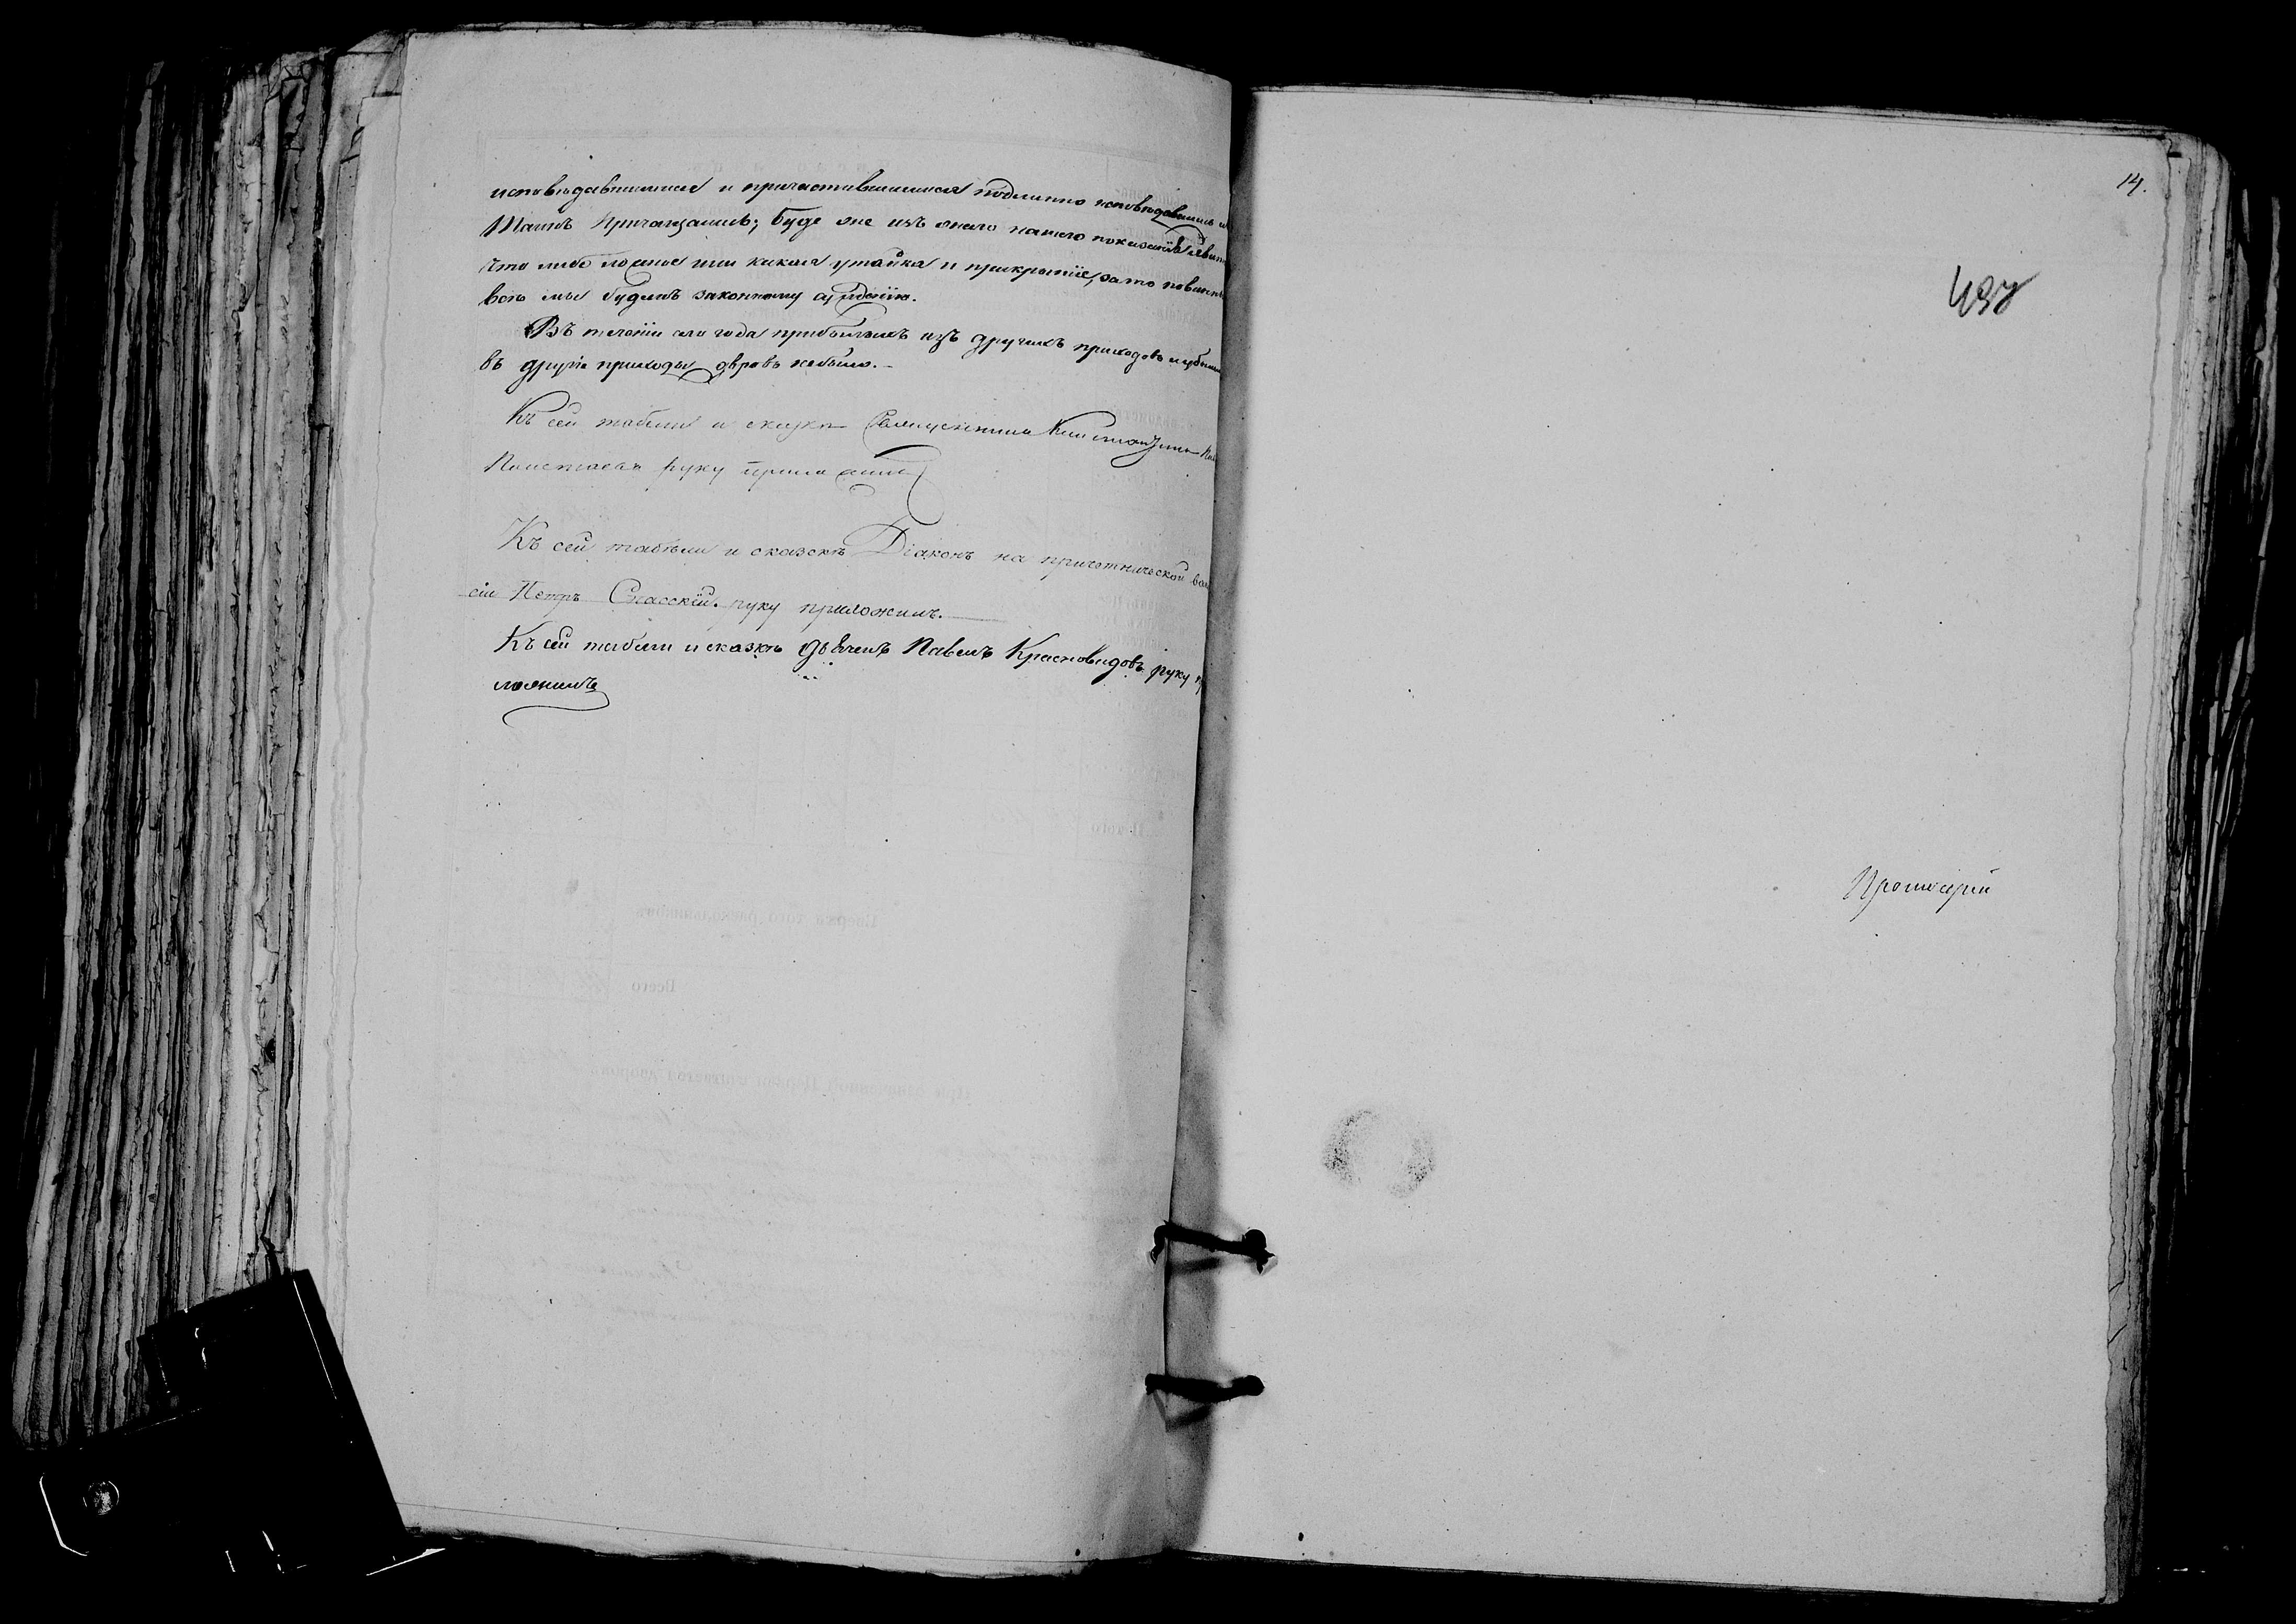 исповѣдавшимися и причастившимися подлинно исповѣдовались и
Таинъ Причащались; буде же изъ онаго нашего показанія явит
что либо ложное или какая утайка и прикрытіе, за то повинны
всѣ мы будемъ законному сужденію.
Въ теченіи сего года прибылыхъ изъ другихъ приходовъ и убылы
въ другіе приходы дворовъ небыло.
Къ сей табели и сказкѣ Священникъ Константинъ
руку приложилъ
Къ сей табели и сказкѣ Діаконъ на причетнической вакан
сіи Петръ Спасскій руку приложилъ.
Къ сей табели и сказкѣ дьячекъ Павелъ Красновидовъ руку при
ложилъ
14.
497
Протоіерей
Итого
Сверхъ того раскольниковъ
Всего